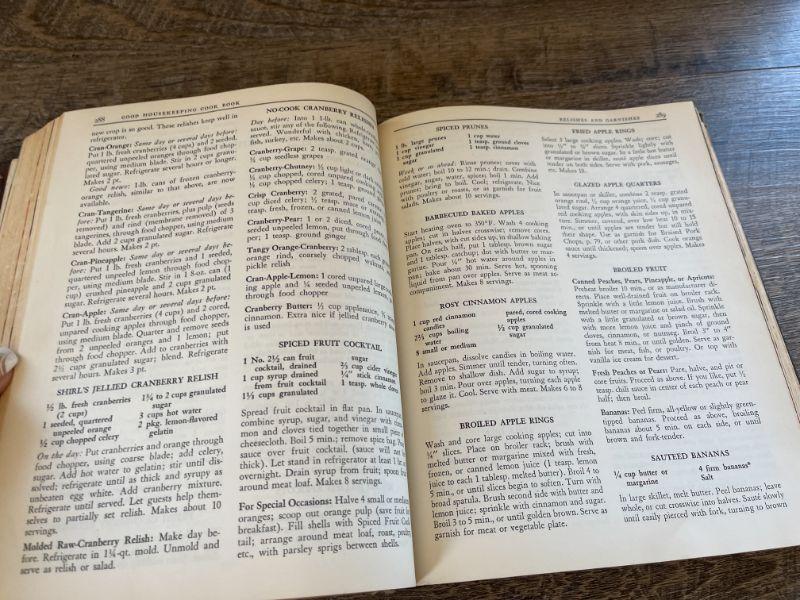 288 GOOD HOUSEKEEPING COOK BOOK
new crop is so good. These relishes keep well in
refrigerator.
Cran-Orange: Same day or several days before:
Put 1 lb. fresh cranberries (4 cups) and 2 seeded,
quartered unpeeled oranges through food chop-
per, using medium blade. Stir in 2 cups granu-
lated sugar. Refrigerate several hours or longer.
Makes 2 pt.
Good news: 1-lb. cans of frozen cranberry-
orange relish, similar to that above, are now
available.
Cran-Tangerine: Same day or several days be-
fore: Put 1 lb. fresh cranberries, plus pulp (seeds
removed) and rind (membrane removed) of 3
tangerines, through food chopper, using medium
blade. Add 2 cups granulated sugar. Refrigerate
several hours. Makes 2 pt.
Cran-Pineapple: Same day or several days be-
fore: Put 1 lb. fresh cranberries and 1 seeded,
quartered unpeeled lemon through food chop-
per, using medium blade. Stir in 1 8-oz. can (1
cup) crushed pineapple and 2 cups granulated
sugar. Refrigerate several hours. Makes 2 pt.
Cran-Apple: Same day or several days before:
Put 1 lb. fresh cranberries (4 cups) and 2 cored,
unpared cooking apples through food chopper,
using medium blade. Quarter and remove seeds
from 2 unpeeled oranges and 1 lemon; put
through food chopper. Add to cranberries with
2½ cups granulated sugar; blend. Refrigerate
several hours. Makes 3 pt.
SHIRL'S JELLIED CRANBERRY RELISH
½ lb. fresh cranberries
(2 cups)
1 seeded, quartered
unpeeled orange
½ cup chopped celery
1¾ to 2 cups granulated
sugar
3 cups hot water
2 pkg. lemon-flavored
gelatin
On the day: Put cranberries and orange through
food chopper, using coarse blade; add celery,
sugar. Add hot water to gelatin; stir until dis-
solved; refrigerate until as thick and syrupy as
unbeaten egg white. Add cranberry mixture.
Refrigerate until served. Let guests help them-
selves to partially set relish. Makes about 10
servings.
Molded Raw-Cranberry Relish: Make day be-
fore. Refrigerate in 1¼-qt. mold. Unmold and
serve as relish or salad.
NO-COOK CRANBERRY
Day before: Into 1 1-lb. can
sauce, stir any of the following. Refrigerate
served. Wonderful with chicken,
fish, turkey, etc. Makes about 2 cups.
Cranberry-Grape: 2 tbsp. grated
½ cup seedless grapes
Cranberry-Chutney: ½ cup light or dark
½ cup chopped, cored unpared cooking
¼ cup chopped celery; 1 teasp.
Crisp Cranberry: 2 grated,
cup diced celery; ½ teasp.
teasp. fresh, frozen, or canned lemon
Cranberry-Pear: 1 or 2 diced, cored
seeded unpeeled lemon, put through
per; 1 teasp. ground ginger
Tangy Orange-Cranberry: 2 tablesp.
orange rind, coarsely chopped
pickle relish
Cran-Apple-Lemon: 1 cored unpared large
ing apple and ¼ seeded unpeeled lemon,
through food chopper
Cranberry Butter: ½ cup applesauce, ½
cinnamon. Extra nice if jellied cranberry
is used
SPICED FRUIT COCKTAIL
1 No. 2½ can fruit
cocktail, drained
1 cup syrup drained
from fruit cocktail
1⅓ cups granulated
sugar
⅔ cup cider vinegar
¼" stick cinnamon
1 teasp. whole cloves
Spread fruit cocktail in flat pan. In saucepan
combine syrup, sugar, and vinegar with
mon and cloves tied together in small
cheesecloth. Boil 5 min.; remove spice bag.
sauce over fruit cocktail. (sauce will not be
thick). Let stand in refrigerator at least 1
overnight. Drain syrup from fruit; spoon
around meat loaf. Makes 8 servings.
For Special Occasions: Halve 4 small or medium
oranges; scoop out orange pulp (save for
breakfast). Fill shells with Spiced Fruit Cock-
tail; arrange around meat loaf, roast, poultry,
etc., with parsley sprigs between shells.
RELISHES AND GARNISHES 289
SPICED PRUNES
1 lb. large prunes
1 cup vinegar
1 cup granulated
sugar
1 cup water
1 teasp. ground cloves
1 teasp. cinnamon
Week or so ahead: Rinse prunes; cover with
cold water; boil 10 to 12 min.; drain. Combine
vinegar, sugar, water, spices; boil 1 min. Add
prunes; bring to boil. Cool; refrigerate. Nice
with poultry or roasts, or as garnish for fruit
salads. Makes about 10 servings.
BARBECUED BAKED APPLES
Start heating oven to 350°F. Wash 4 cooking
apples; cut in halves crosswise; remove cores.
Place halves, with cut sides up, in shallow baking
pan. On each half, put 1 tablesp. brown sugar
and 1 tablesp. catchup; dot with butter or mar-
garine. Pour ¼" hot water around apples in
pan; bake about 30 min. Serve hot, spooning
liquid from pan over apples. Serve as meat ac-
companiment. Makes 8 servings.
ROSY CINNAMON APPLES
1 cup red cinnamon
candies
2½ cups boiling
water
8 small or medium
pared, cored cooking
apples
½ cup granulated
sugar
In saucepan, dissolve candies in boiling water.
Add apples. Simmer until tender, turning often.
Remove to shallow dish. Add sugar to syrup;
boil 3 min. Pour over apples, turning each apple
to glaze it. Cool. Serve with meat. Makes 6 to 8
servings.
BROILED APPLE RINGS
Wash and core large cooking apples; cut into
¼" slices. Place on broiler rack; brush with
melted butter or margarine mixed with fresh,
frozen, or canned lemon juice (1 teasp. lemon
juice to each 1 tablesp. melted butter). Broil 4 to
5 min., or until slices begin to soften. Turn with
broad spatula. Brush second side with butter and
lemon juice; sprinkle with cinnamon and sugar.
Broil 3 to 5 min., or until golden brown. Serve as
garnish for meat or vegetable plate.
FRIED APPLE RINGS
Select large cooking apples. Wash; core; cut
into ½" to ¾" slices. Sprinkle lightly with
granulated or brown sugar. In a little hot butter
or margarine in skillet, sauté apple slices until
tender on both sides. Serve with pork, sausages,
etc.
GLAZED APPLE QUARTERS
In saucepan or skillet, combine 2 teasp. grated
orange rind, ½ cup orange juice, ½ cup granu-
lated sugar. Arrange 4 quartered, cored unpared
red cooking apples, with skin sides up, in mix-
ture. Simmer, covered, over low heat 10 to 15
min., or until apples are tender but still hold
their shape. Use as garnish for Braised Pork
Chops, p. 79, or other pork dish. Cook orange
sauce until thickened; spoon over apples. Makes
4 servings.
BROILED FRUIT
Canned Peaches, Pears, Pineapple, or Apricots:
Preheat broiler 10 min., or as manufacturer di-
rects. Place well-drained fruit on broiler rack.
Sprinkle with a little lemon juice. Brush with
melted butter or margarine or salad oil. Sprinkle
with a little granulated or brown sugar, then
with more lemon juice and pinch of ground
cloves, cinnamon, or nutmeg. Broil 3" to 4"
from heat 8 min., or until golden. Serve as gar-
nish for meat, fish, or poultry. Or top with
vanilla ice cream for dessert.
Fresh Peaches or Pears: Pare, halve, and pit or
core fruits. Proceed as above. If you like, put ½
teasp. chili sauce in center of each peach or pear
half; then broil.
Bananas: Peel firm, all-yellow or slightly green-
tipped bananas. Proceed as above, broiling
bananas about 5 min. on each side, or until
brown and fork-tender.
SAUTEED BANANAS
¼ cup butter or
margarine
4 firm bananas*
Salt
In large skillet, melt butter. Peel bananas; leave
whole, or cut crosswise into halves. Sauté slowly
until easily pierced with fork, turning to brown